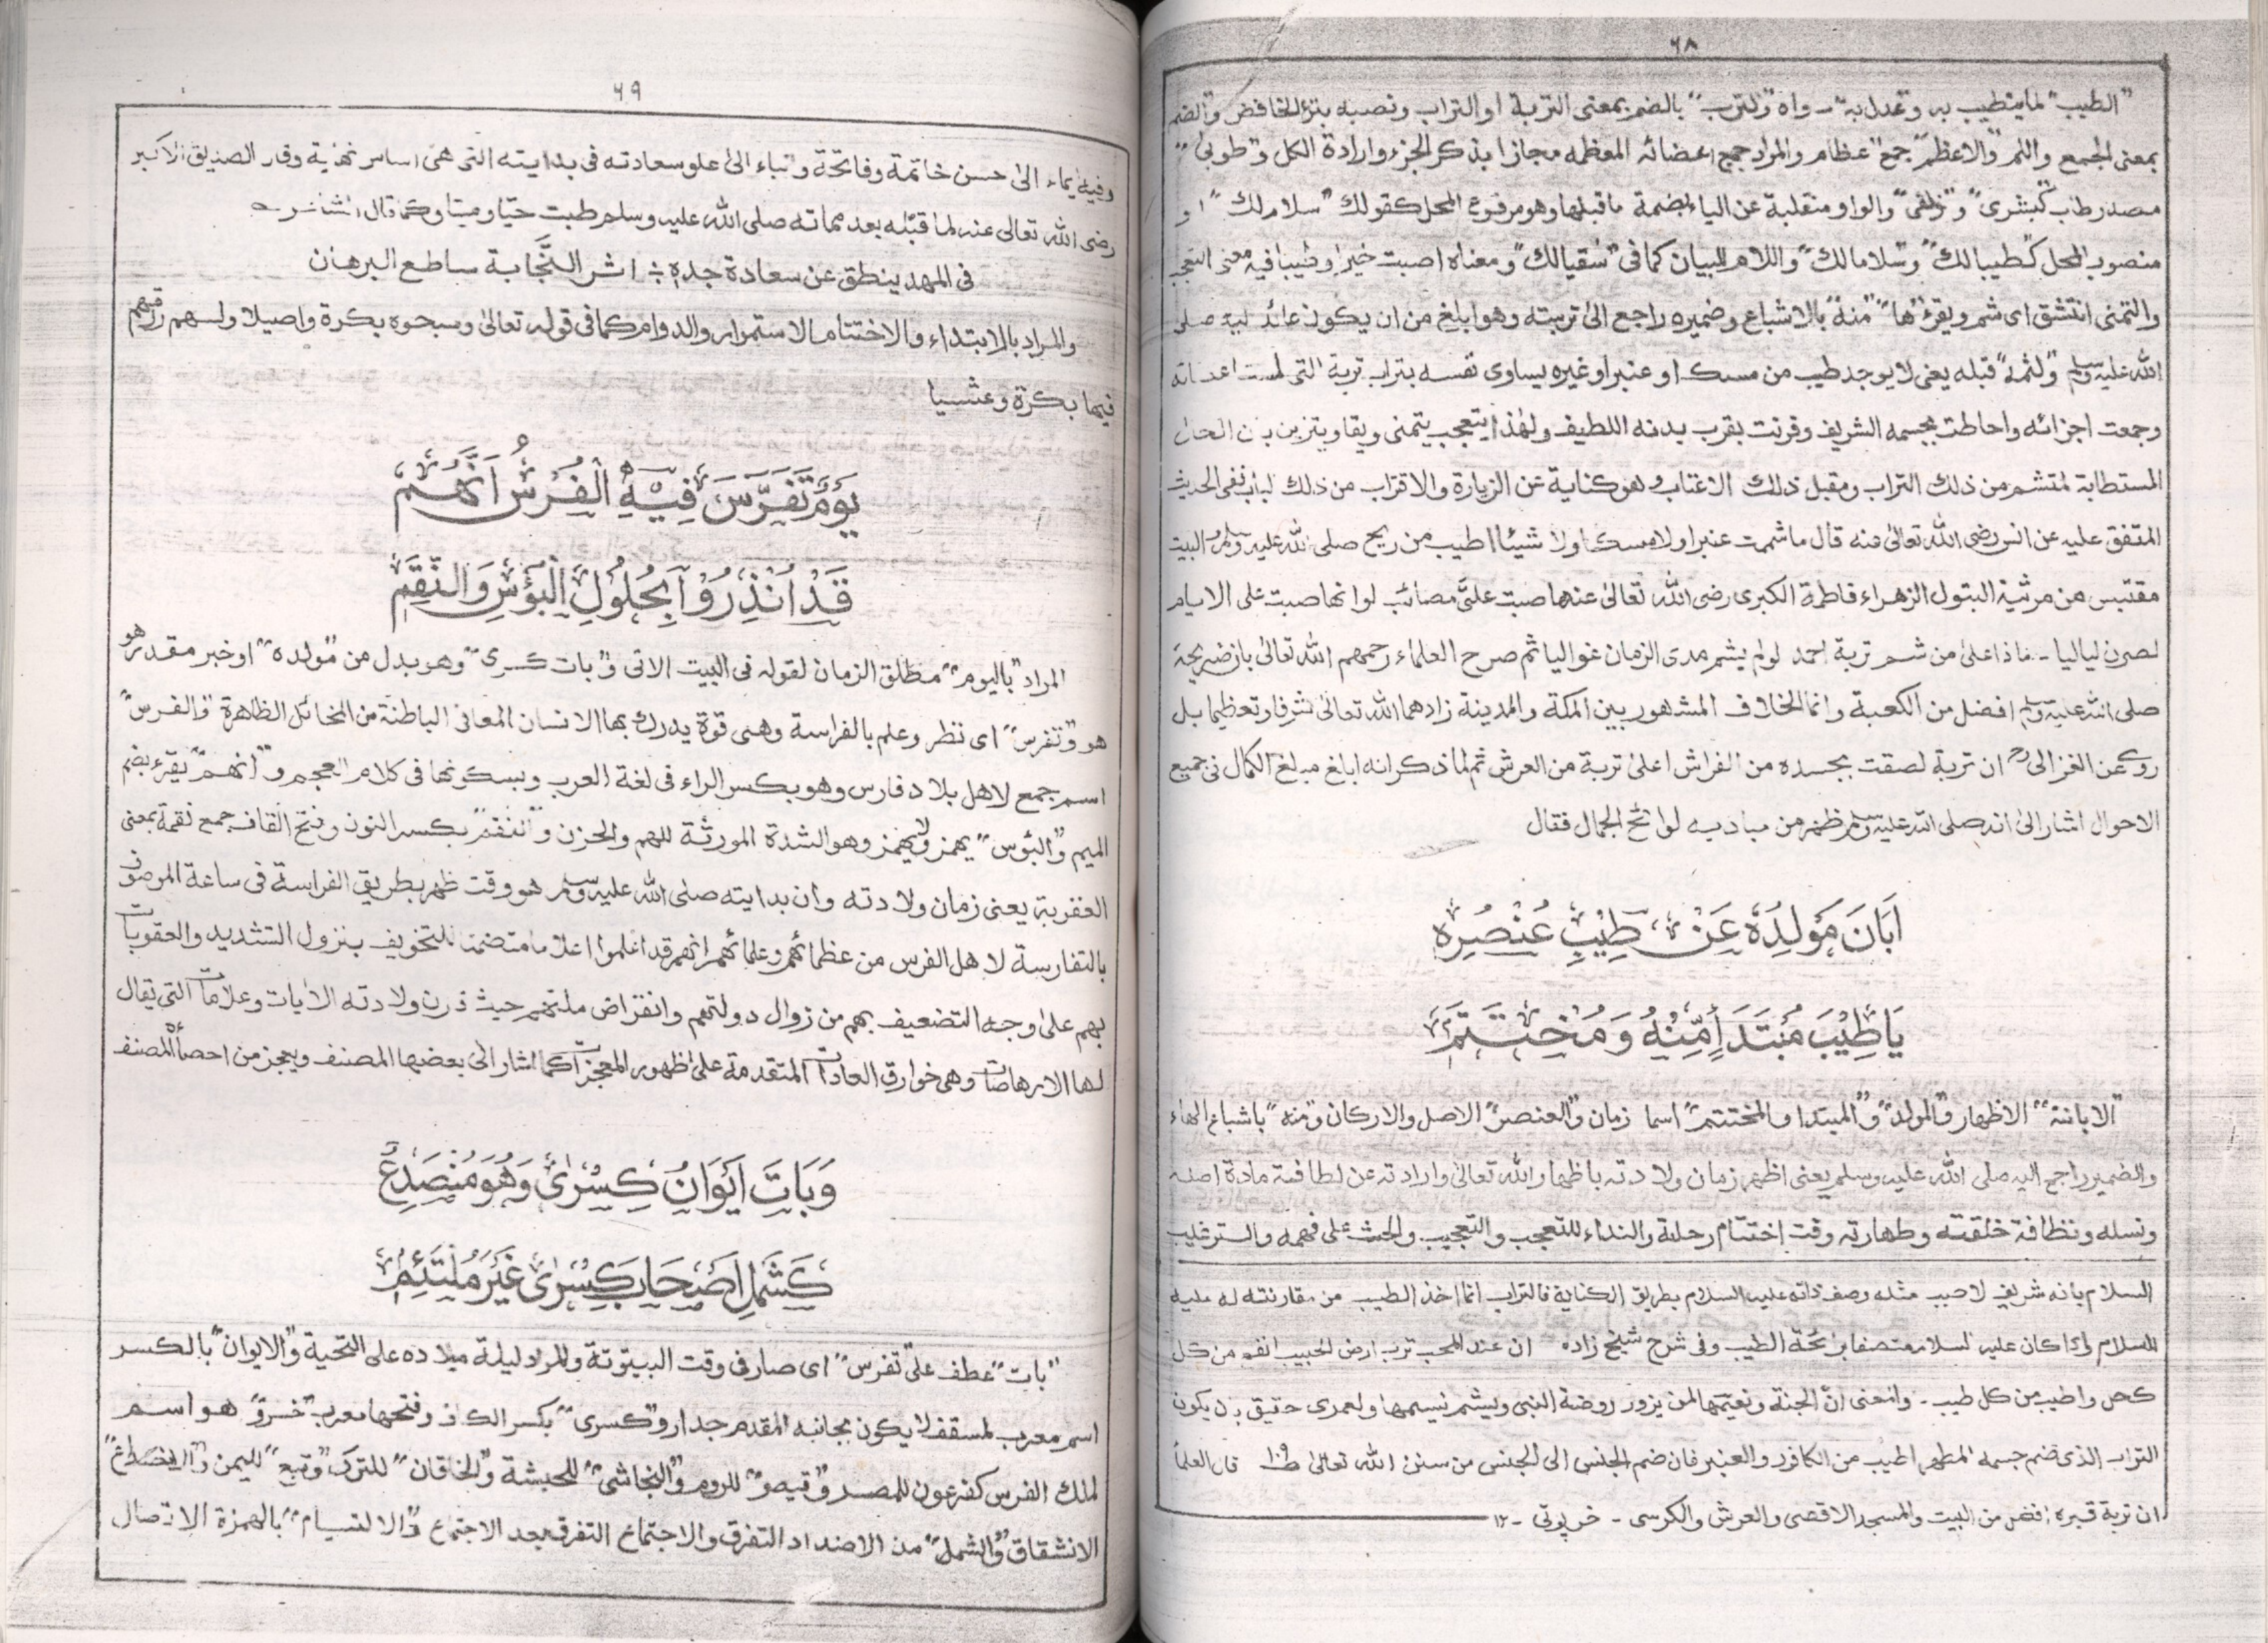 ٦٨
"الطيب" لما يتطيب به وتعدل به ـ واه و"الترب" بالضم بمعنى التربة او التراب ونصبه بنزع الخافض و"الضم"
بمعنى الجمع واللم و"الاعظم" جمع "عظام" والمراد جمع اعضائه المعظمه مجازا بذكر الجزء وارادة الكل و"طوبى"
مصدر طاب "كبشرى" و"زلفى" والواو منقلبة عن الياء بضمة ماقبلها وهو مرفوع المحل كقولك "سلام لك" او
منصوب المحل كـ"طيبا لك" و"سلاما لك" واللام للبيان كما فى "سقيا لك" ومعناه اصبت خيرا وطيبا فيه معنى التعجب
والتمنى انتشق اى شم ويقرء "ها" "منه" بالاشباع وضميره راجع الى تربته وهو ابلغ من ان يكون عائد اليه صلى
الله عليه وسلم و"لثم" قبله يعنى لا يوجد طيب من مسك او عنبر او غيره يساوى نفسه بتراب تربة التى لمست اعضاته
وجمعت اجزائه واحاطت بجسمه الشريف وقرنت بقرب بدنه اللطيف ولهذا يتعجب يتمنى ويقا ويتزين بان الحال
المستطابة لمتشم من ذلك التراب ومقبل ذلك الاعتاب وهو كناية عن الزيارة والاقتراب من ذلك لباب ففى الحديث
المتفق عليه عن انس رضى الله تعالى عنه قال ما شممت عنبرا ولا مسكا ولا شيئا اطيب من ريح صلى الله عليه وسلم والبيت
مقتبس من مرثية البتول الزهراء فاطمة الكبرى رضى الله تعالى عنها صبت على مصائب لو انها صبت على الايام
لصرن لياليا ـ ماذا على من شم تربة احمد لو لم يشم مدى الزمان غواليا ثم صرح العلماء رحمهم الله تعالى بان ضريحة
صلى الله عليه وسلم افضل من الكعبة وانما الخلاف المشهور بين المكة والمدينة زادهما الله تعالى شرفا وتعظيما بل
روى عن الغزالى رح ان تربة لصقت بجسده من الفراش اعلى تربة من العرش ثم لما ذكر انه ابلغ مبلغ الكمال فى جميع
الاحوال اشار الى انه صلى الله عليه وسلم ظهر من مباديه لوائح الجمال فقال
اَبَانَ مَوْلِدُهٗ عَنْ طِيْبِ عُنْصُرِهٖ
يَا طِيْبَ مُبْتَدَأٍ مِّنْهُ وَمُخْتَتَمٖ
"الابانة" الاظهار و"المولد" و"المبتدا والمختتم" اسما زمان و"العنصر" الاصل والاركان و"منه" باشباع الهاء
والضمير راجع اليه صلى الله عليه وسلم يعنى اظهر زمان ولادته باظهار الله تعالى وارادته عن لطافته مادة اصله
ونسله ونظافة خلقته وطهارته وقت اختتام رحلته والنداء للتعجب والتعجيب والحث على فهمه والترغيب
السلام بانه شريف لا حبب مثله وصف ذاته عليه السلام بطريق الكناية فالتراب انما اخذ الطيب من مقارنته له عليه
السلام كان عليه السلام متصفا برائحة الطيب وفى شرح شيخ زاده ان عند المحب ترب ارض الحبيب انفع من كل
كحل واطيب من كل طيب ـ والمعنى ان الجنة ونعيمها لمن يزور روضة النبى ويشم نسيمها ولعمرى حقيق بان يكون
التراب الذى ضم جسمه المطهر اطيب من الكافور والعنبر فان ضم الجنس الى الجنس من سنن الله تعالى قال العلماء
ان تربة قبره افضل من البيت والمسجد الاقصى والعرش والكرسى ـ خرپوتى ـ ١٢
٦٩
وفيه ايماء الى حسن خاتمة وفاتحة وانباء الى علو سعادته فى بدايته التى هى اساس نهاية وقار الصديق الاكبر
رضى الله تعالى عنه لما قبله بعد مماته صلى الله عليه وسلم طبت حيا وميتا وكما قال الشاعر
فى المهد ينطق عن سعادة جده ؞ اثر النجابة ساطع البرهان
والمراد بالابتداء والاختتام الاستمرار والدوام كما فى قوله تعالى وسبحوه بكرة واصيلا ولهم رزقهم
فيها بكرة وعشيا
يَوْمٌ تَفَرَّسَ فِيْهِ الْفُرْسُ اَنَّهُمْ
قَدْ اُنْذِرُوْا بِحُلُوْلِ الْبُؤْسِ وَالنِّقَمٖ
المراد "باليوم" مطلق الزمان لقوله فى البيت الاتى و"بات كسرى" وهو بدل من "مولده" او خبر مقدر هو
هو و"تفرس" اى نظر وعلم بالفراسة وهى قوة يدرك بها الانسان المعانى الباطنة من المخائل الظاهرة و"الفرس"
اسم جمع لاهل بلاد فارس وهو بكسر الراء فى لغة العرب وبسكونها فى كلام العجم و"انهم" يقرء بضم
الميم و"البؤس" يهمز ولا يهمز وهو الشدة المورثة للهم والحزن و"النقم" بكسر النون وفتح القاف جمع نقمة بمعنى
العقوبة يعنى زمان ولادته وان بدايته صلى الله عليه وسلم هو وقت ظهر بطريق الفراسة فى ساعة الموصوف
بالتفارسة لاهل الفرس من عظمائهم وعلمائهم انهم قد اعلموا اعلاما متضمنا للتخويف بنزول التشديد والعقوبات
بهم على وجه التضعيف بهم من زوال دولتهم وانقراض ملتهم حيث قرن ولادته الايات وعلامات التى يقال
لها الارهاصات وهى خوارق العادات المتقدمة على ظهور المعجزات كما اشار الى بعضها المصنف ويعجز من احصاه المصنف
وَبَاتَ اِيْوَانُ كِسْرٰى وَهُوَ مُنْصَدِعٌ
كَشَمْلِ اَصْحَابِ كِسْرٰى غَيْرَ مُلْتَئِمٖ
"بات" عطف على "تفرس" اى صار فى وقت البيتوتة والمراد ليلة ميلاده على التحية و"الايوان" بالكسر
اسم معرب لمسقف لا يكون بجانبه المقدم جدار و"كسرى" بكسر الكاف وفتحها معرب "خسرو" هو اسم
لملك الفرس كفرعون للمصر و"قيصر" للروم و"النجاشى" للحبشة و"الخاقان" للترك و"تبع" لليمن و"الانصداع"
الانشقاق و"الشمل" من الاضداد التفرق والاجتماع التفرق بعد الاجتماع و"الالتيام" بالهمزة الاتصال